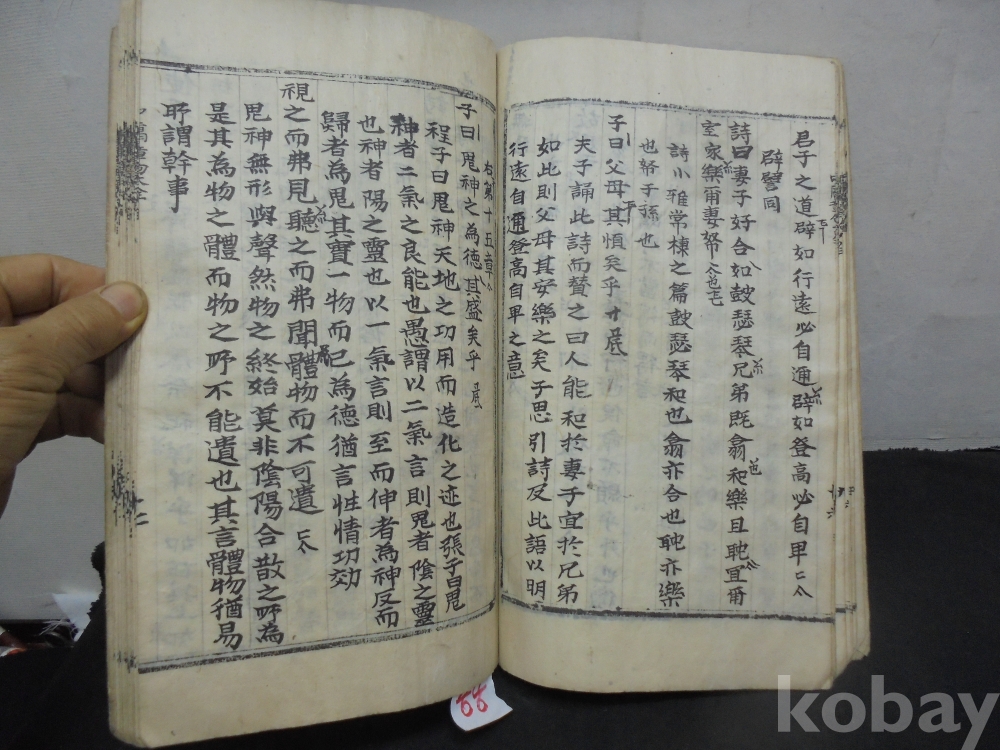 君子之道辟如行遠必自邇辟如登高必自卑
辟譬同
詩曰妻子好合如鼓瑟琴兄弟既翕和樂且耽宜爾
室家樂爾妻帑
詩小雅常棣之篇鼓瑟琴和也翕亦合也耽亦樂
也帑子孫也
子曰父母其順矣乎
夫子誦此詩而贊之曰人能和於妻子宜於兄弟
如此則父母其安樂之矣子思引詩及此語以明
行遠自邇登高自卑之意
右第十五章
子曰鬼神之為德其盛矣乎
程子曰鬼神天地之功用而造化之迹也張子曰鬼
神者二氣之良能也愚謂以二氣言則鬼者陰之靈
也神者陽之靈也以一氣言則至而伸者為神反而
歸者為鬼其實一物而已為德猶言性情功效
視之而弗見聽之而弗聞體物而不可遺
鬼神無形與聲然物之終始莫非陰陽合散之所為
是其為物之體而物之所不能遺也其言體物猶易
所謂幹事
88
kobay